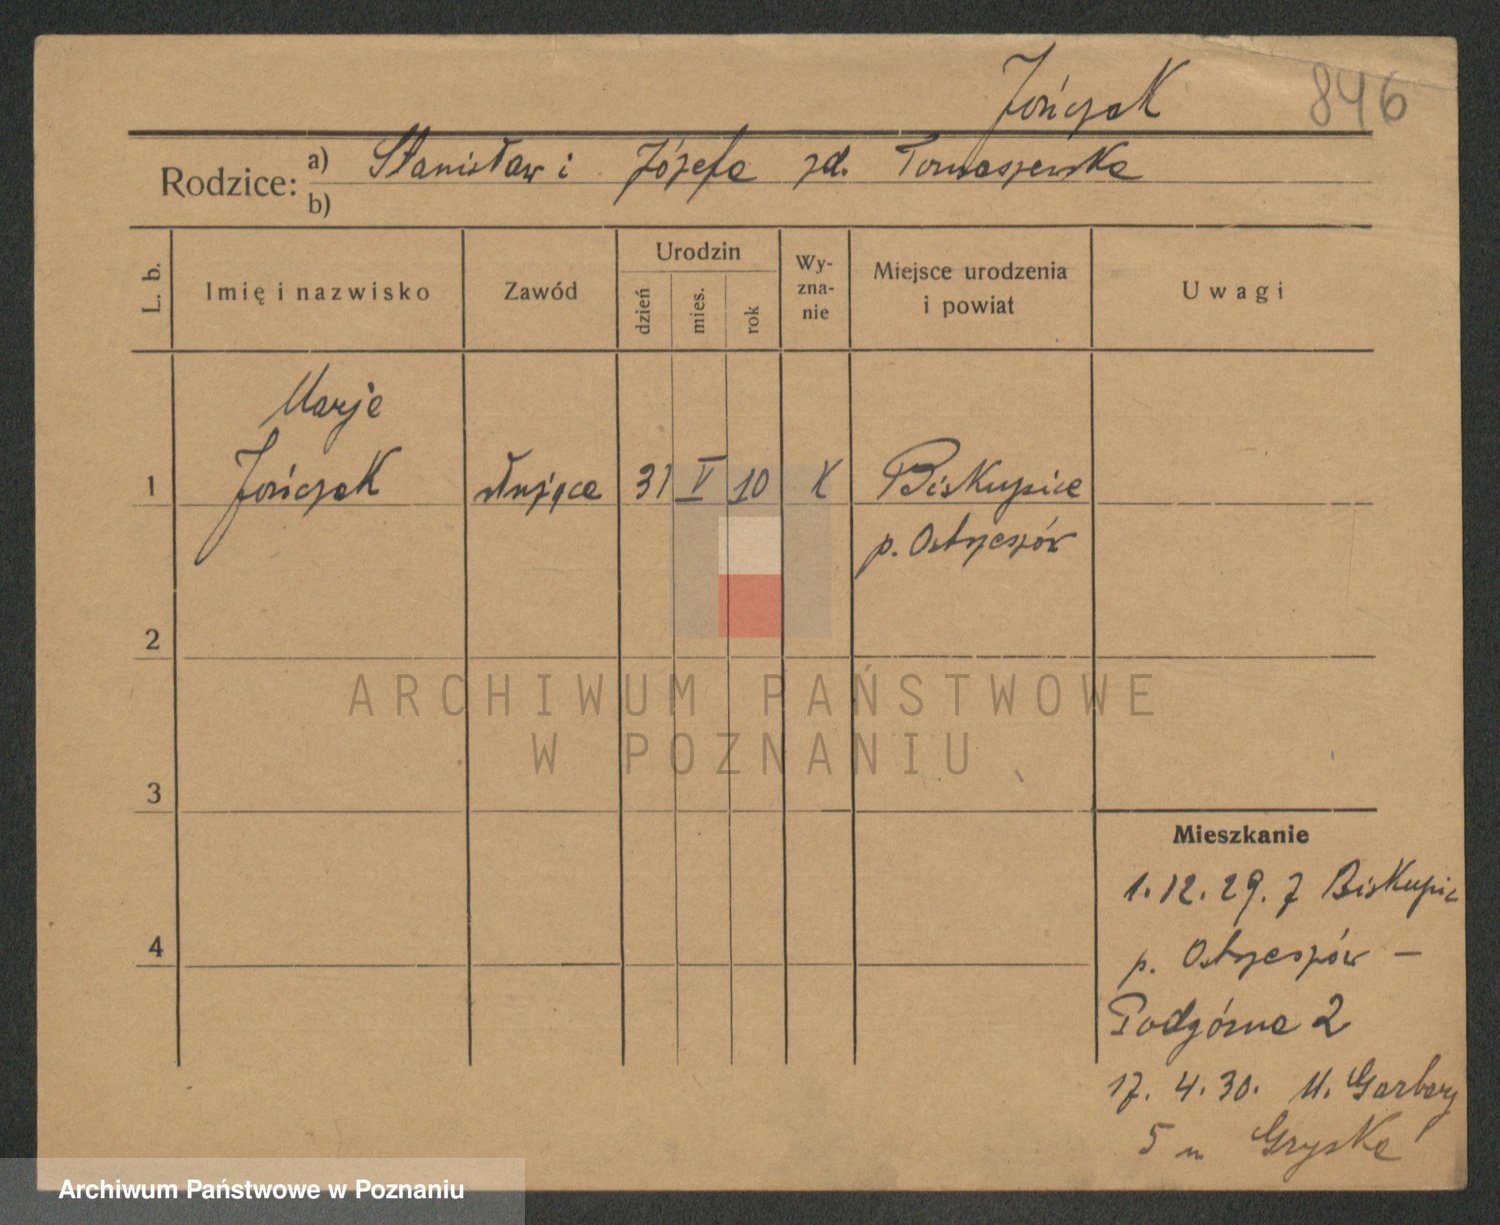 Jończak 846
Rodzice: a) Stanisław i Józefa zd. Tomaszewska
b)
L. b. Imię i nazwisko Zawód Urodzin dzień mies. rok Wyznanie Miejsce urodzenia i powiat Uwagi
Marja
1 Jończak służąca 31 V 10 K Biskupice
p. Ostrzeszów
2
ARCHIWUM PAŃSTWOWE
W POZNANIU
3
Mieszkanie
1.12.29. z Biskupic
4 p. Ostrzeszów –
Podgórna 2
17. 4. 30. M. Garbary
5 u
Archiwum Państwowe w Poznaniu